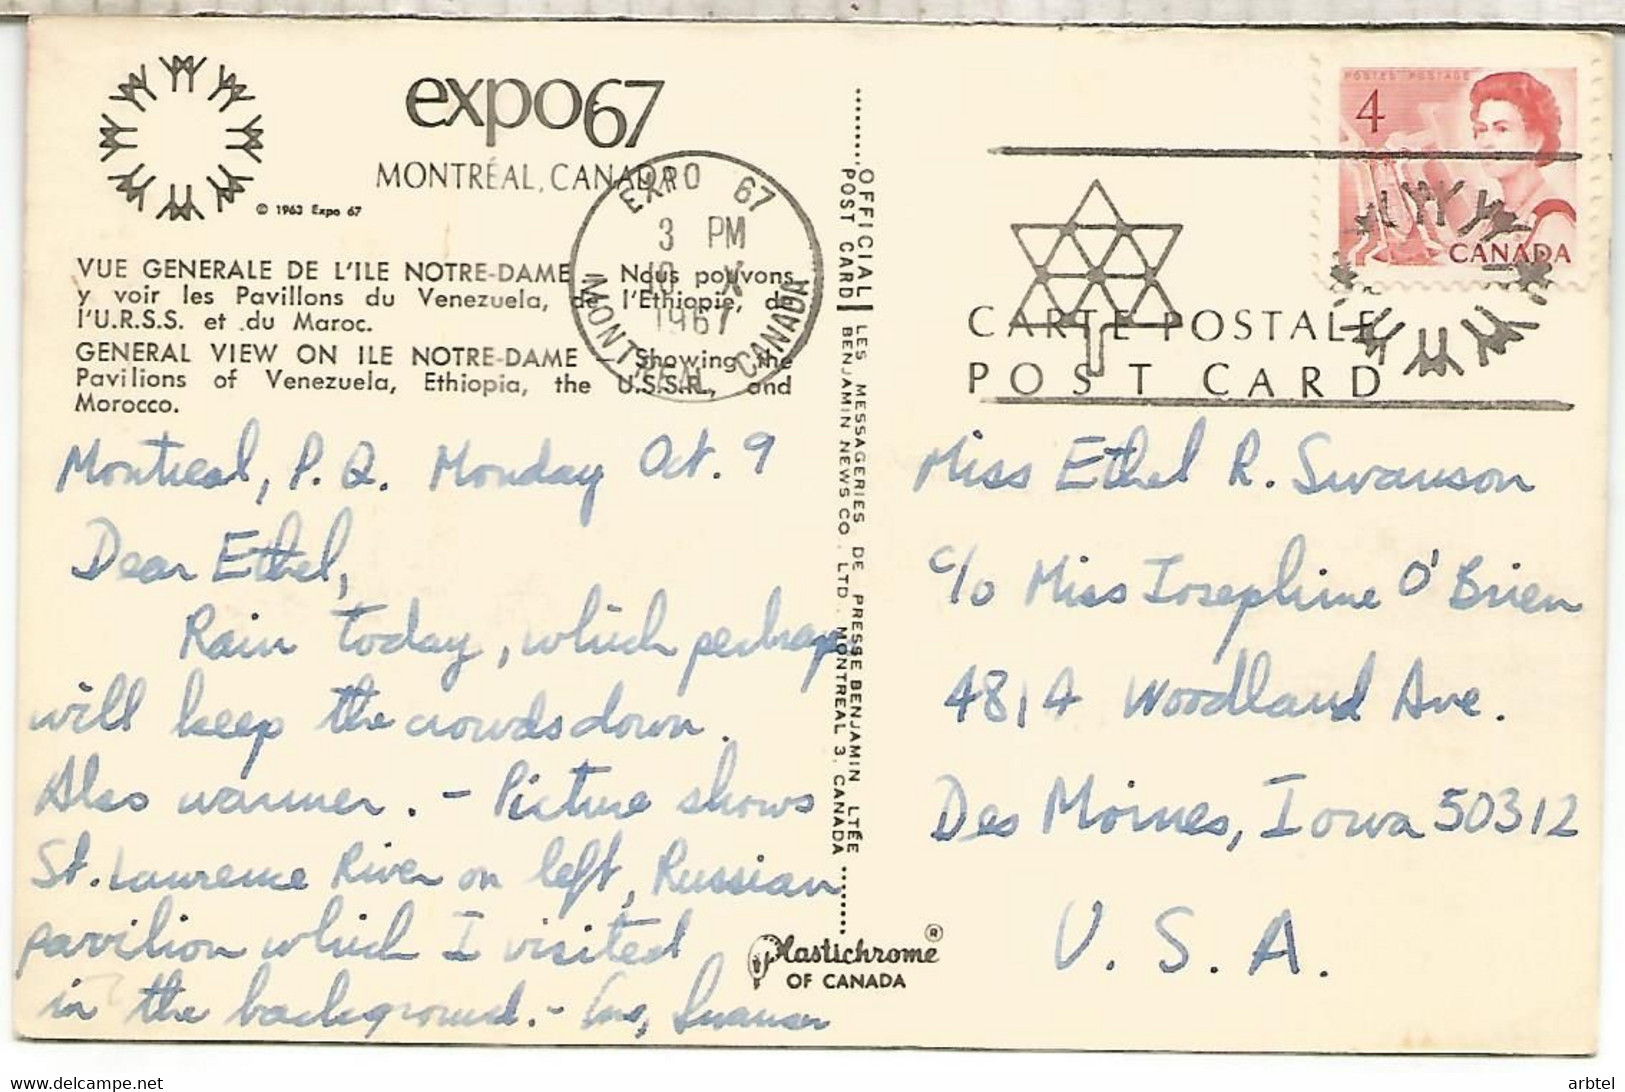 expo67
MONTRÉAL, CANADA
© 1963 Expo 67
EXPO 67
3 PM
10 X
1967
MONTREAL CANADA
VUE GENERALE DE L'ILE NOTRE-DAME — Nous pouvons
y voir les Pavillons du Venezuela, de l'Ethiopie, de
l'U.R.S.S. et du Maroc.
GENERAL VIEW ON ILE NOTRE-DAME — Showing the
Pavilions of Venezuela, Ethiopia, the U.S.S.R., and
Morocco.
Montreal, P.Q. Monday Oct. 9
Dear Ethel,
Rain today, which perhaps
will keep the crowds down.
Also warmer. - Picture shows
St. Lawrence River on left, Russian
pavilion which I visited
in the background. - Swanson
OFFICIAL POST CARD
LES MESSAGERIES DE PRESSE BENJAMIN LTÉE
BENJAMIN NEWS CO. LTD. MONTREAL 3, CANADA
Plastichrome ®
OF CANADA
POSTES POSTAGE
4
CANADA
CARTE POSTALE
POST CARD
Miss Ethel R. Swanson
c/o Miss Josephine O'Brien
4814 Woodland Ave.
Des Moines, Iowa 50312
U.S.A.
delcampe.net
arbtel